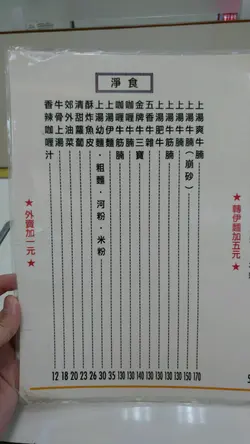 淨食
★轉伊麵加五元★
上湯爽牛腩 170
上湯牛腩(崩砂) 150
上湯牛腩 130
上湯牛筋腩 130
上湯肥牛 130
五香牛雜 130
金牌牛三寶 140
咖喱牛腩 130
咖喱牛筋腩 130
上湯伊麵 35
上湯幼麵·粗麵·河粉·米粉 30
酥炸魚皮 26
清甜蘿蔔 23
郊外油菜 20
牛骨上湯 18
香辣咖喱汁 12
★外賣加一元★